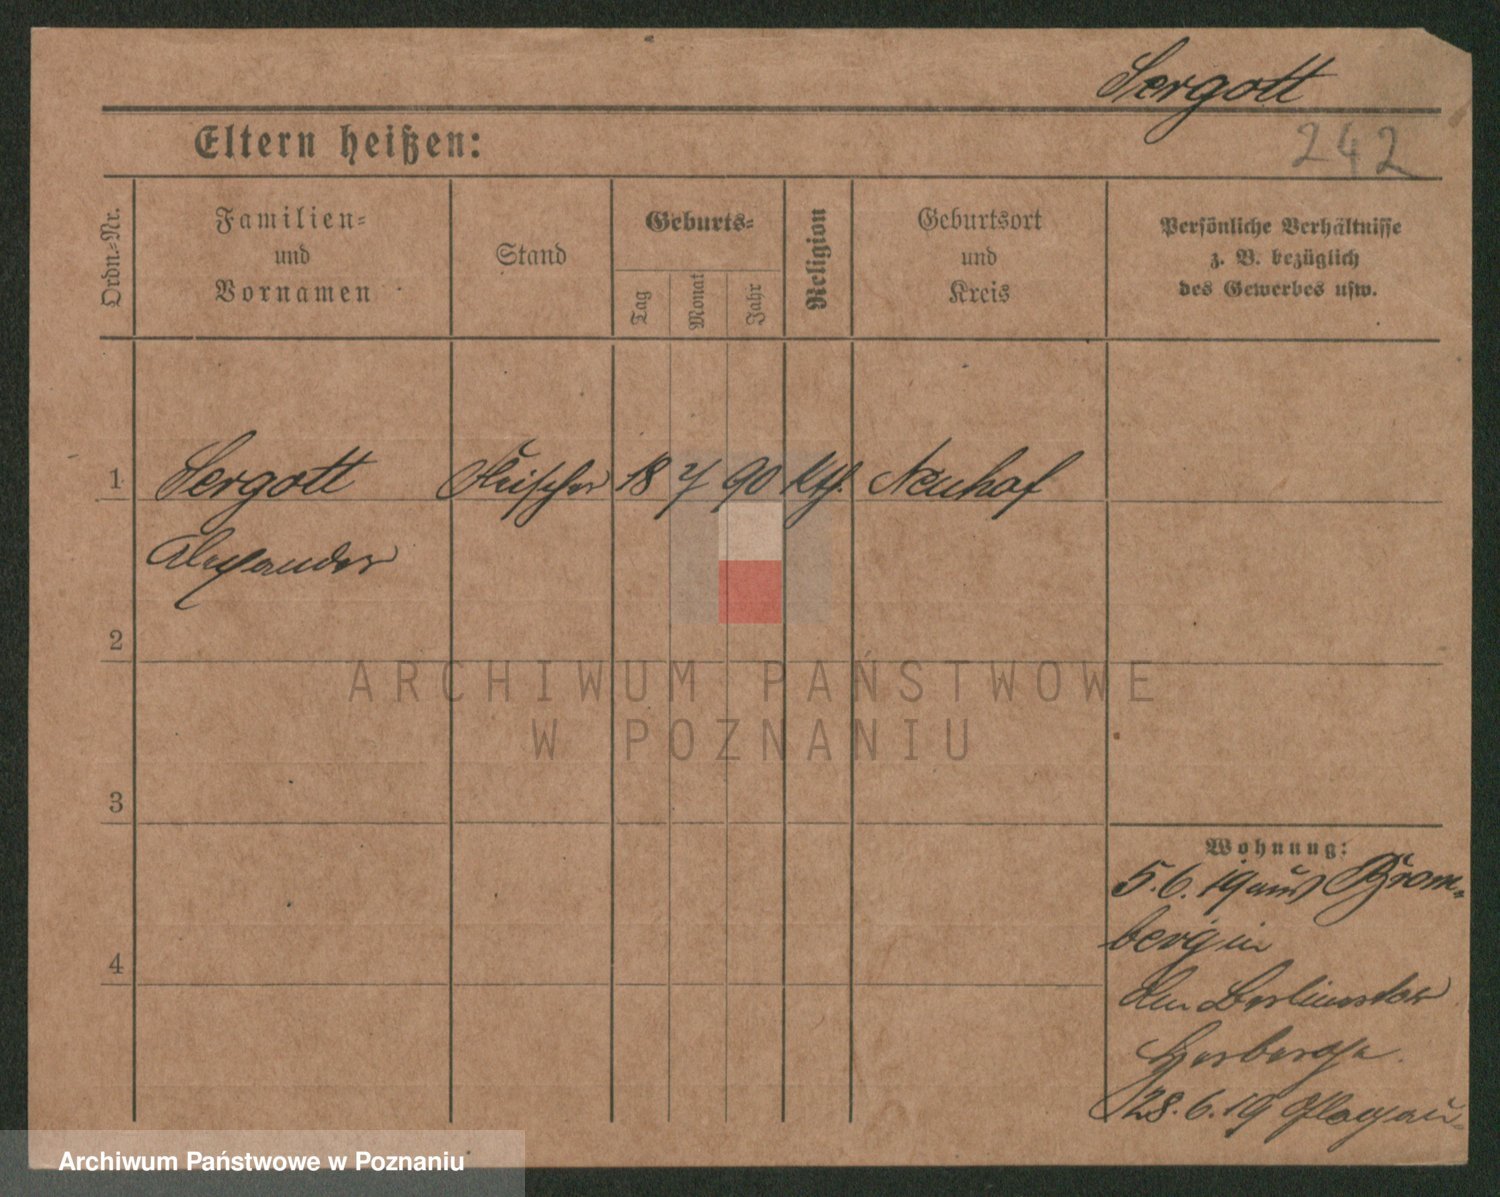 Sergott
Eltern heißen:
242
Ordn.-Nr.
Familien-
und
Vornamen
Stand
Geburts-
Tag
Monat
Jahr
Religion
Geburtsort
und
Kreis
Persönliche Verhältnisse
z. B. bezüglich
des Gewerbes usw.
1 Sergott Fleischer 18 7 90 kth. Neuhof
Alexander
2
ARCHIWUM PAŃSTWOWE
W POZNANIU
3
Wohnung:
5.6.19 aus Brom-
berg in
Am Berlinertor
Herberge.
4
28.6.19 Glogau
Archiwum Państwowe w Poznaniu